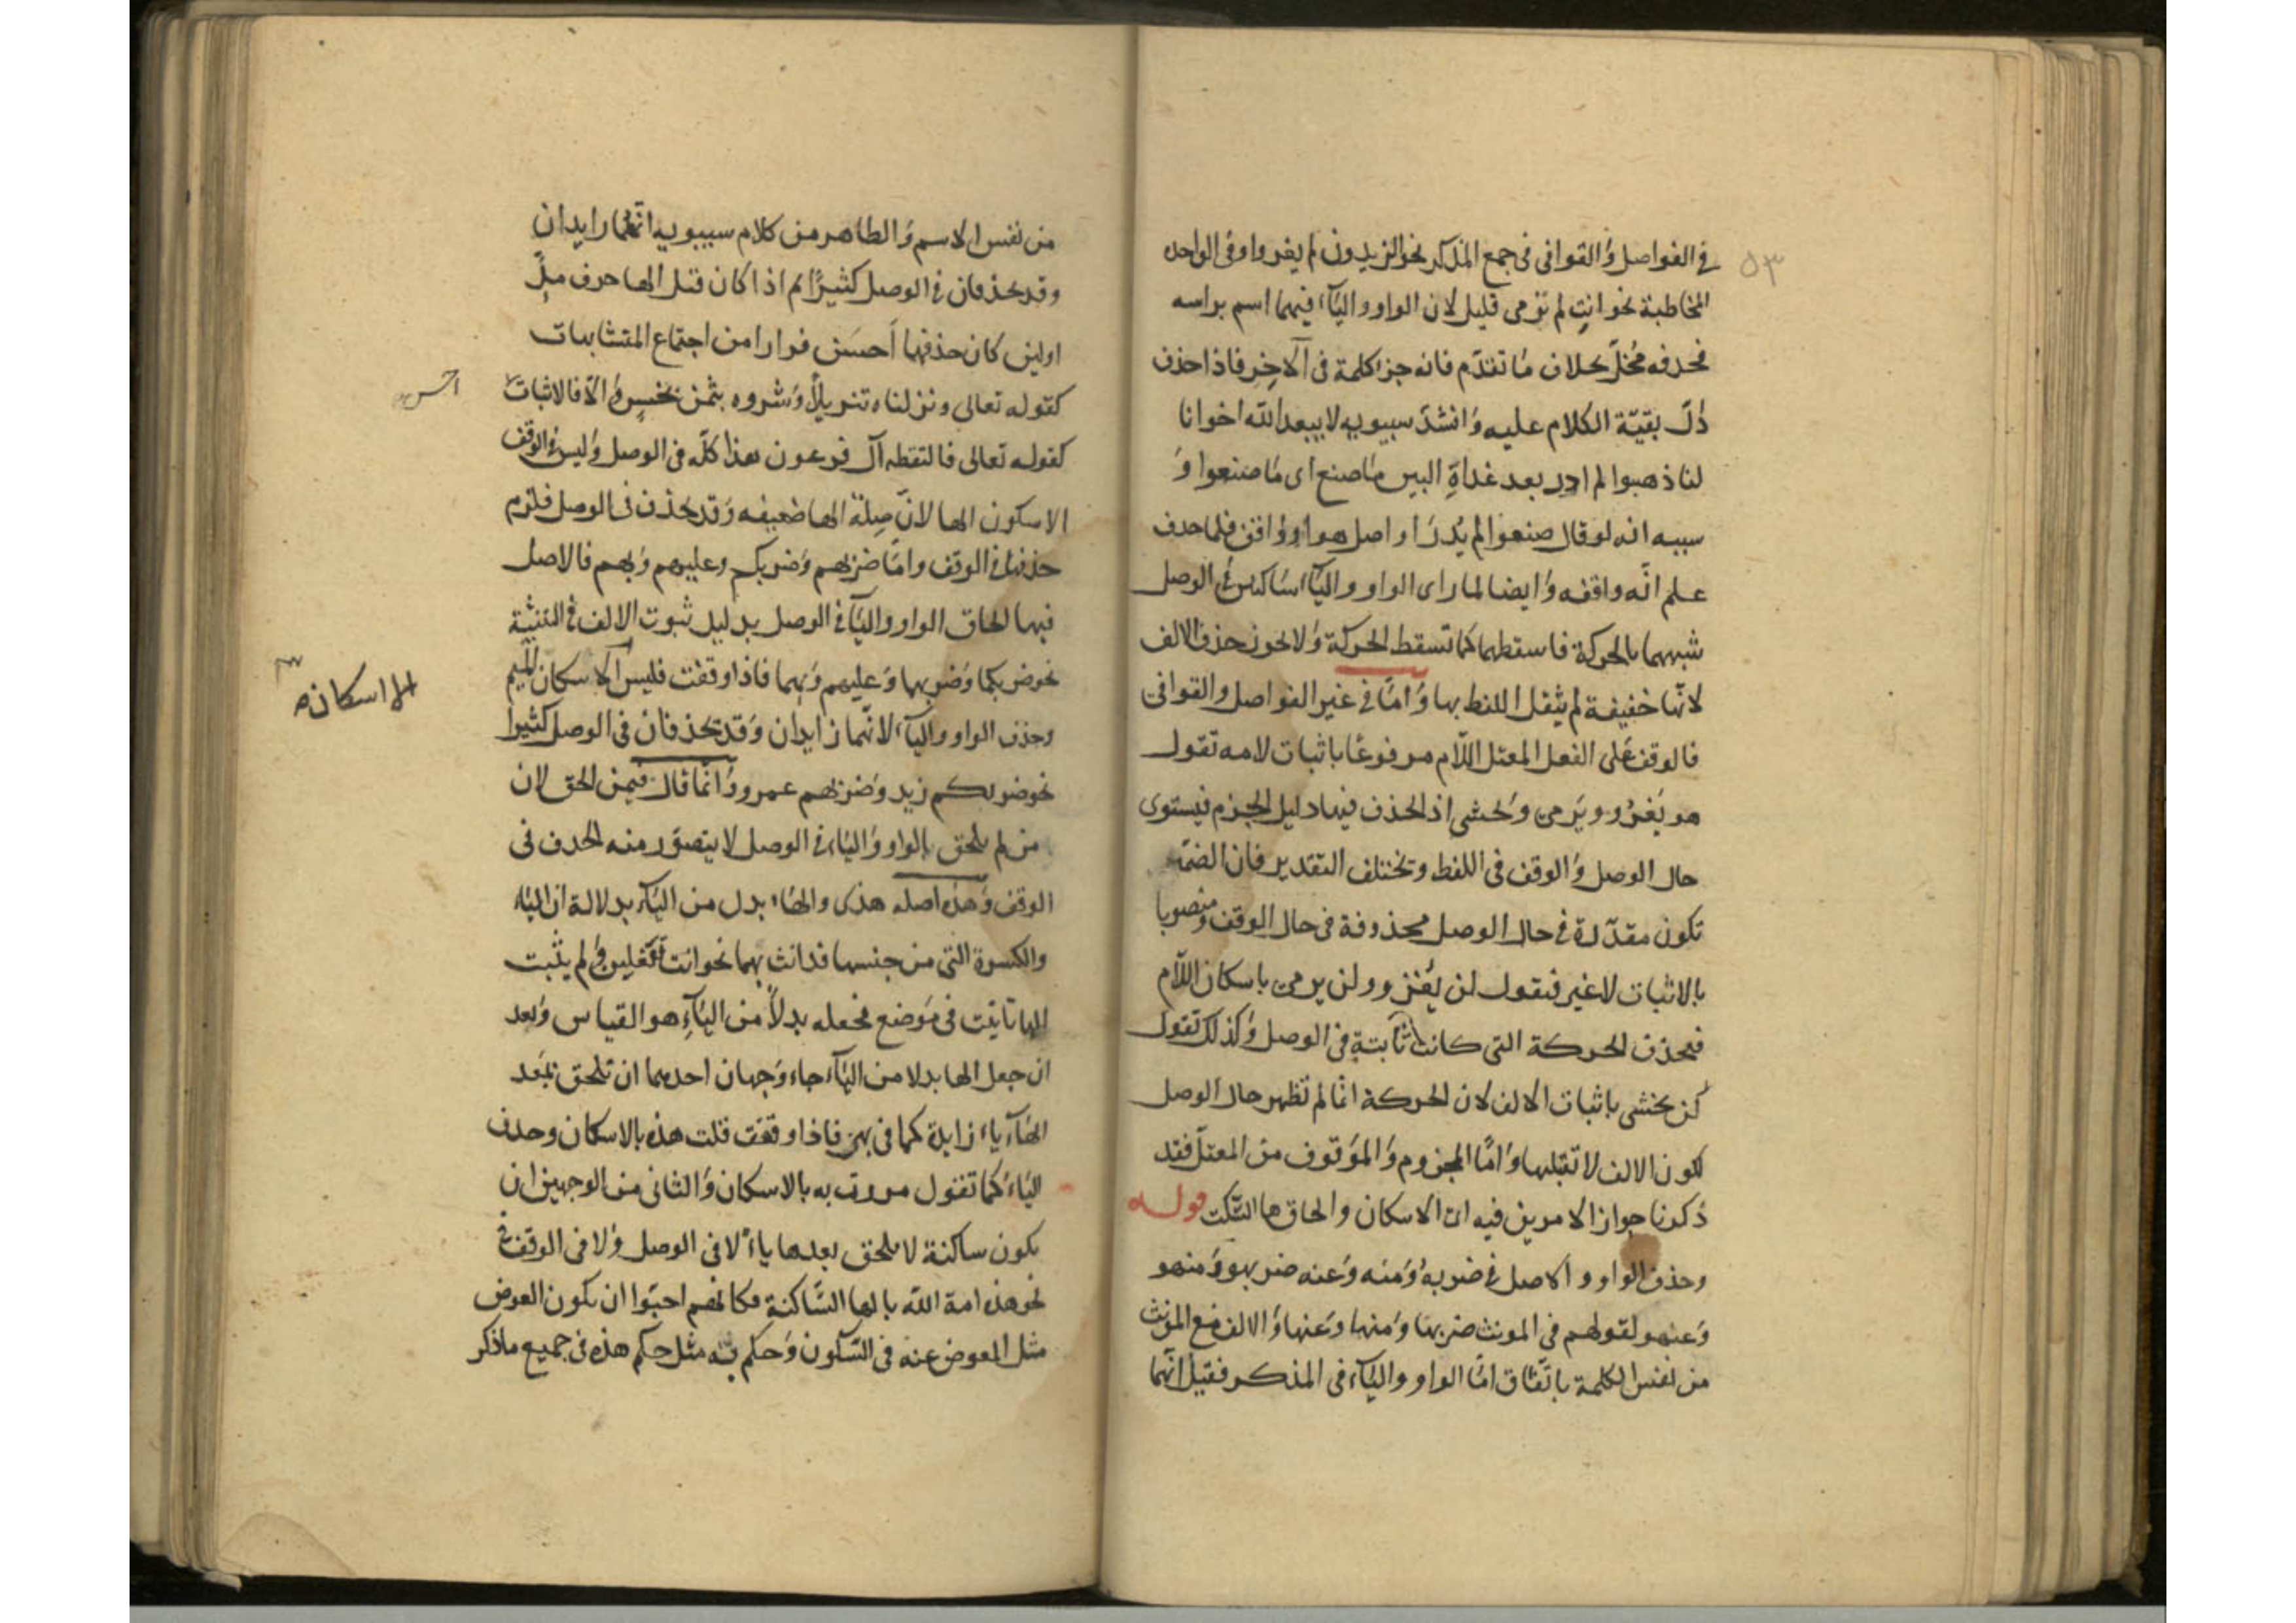 ٥٣
في الفواصل والقوافى فى جمع المذكر نحو الزيدون لم يغزوا وفى الواحده
المخاطبة نحو انتِ لم ترمى قليل لان الواو والياء فيهما اسم براسه
فحذفه مُخلّ بخلاف ما تقدّم فانه جز كلمة فى الآخِر فاذا حذف
دلّ بقيّة الكلام عليه وانشد سيبويه لا يبعد الله اخوانا
لنا ذهبوا لم ادر بعد غداةِ البين ما صنع اى ما صنعوا و
سببه انه لو قال صنعوا لم يُدرَ ا واصل هو او واقف فلما حذف
علم انّه واقف وايضا لما راى الواو والياء ساكنين في الوصل
شبههما بالحركة فاسقطهما كما تسقط الحركة ولا يجوز حذف الالف
لانّها خفيفة لم يثقل اللفظ بها وامّا في غير الفواصل والقوافى
فالوقف على الفعل المعتل اللّام مرفوعًا باثبات لامه تقول
هو يَغزُو ويَرمى ويخشى اذ الحذف فيها دليل الجزم فيستوى
حال الوصل والوقف فى اللفظ وتختلف التقدير فان الضمّة
تكون مقدّرة في حال الوصل محذوفة فى حال الوقف ومنصوبا
بالاثبات لا غير فتقول لن يُغزو ولن يرمى باسكان اللّام
فتحذف الحركة التى كانت ثابتةٍ فى الوصل وكذلك تقول
لن يخشى باثبات الالف لان الحركة انّما لم تظهر حال الوصل
لكون الالف لا تقبلها وامّا المجزوم والموقوف من المعتلّ فقد
ذكرنا جواز الامرين فيه اى الاسكان والحاق ها السّكت قوله
وحذف الواو والاصل في ضربهُ ومنه وعنه ضربهو ومنهو
وعنهو لقولهم فى المونث ضربها ومنها وعنها والالف مع المونث
من نفس الكلمة باتّفاق امّا الواو والياء فى المذكر فقيل انّهما
من نفس الاسم والظاهر من كلام سيبويه انّهما زايدان
وقد يحذفان في الوصل كثيرًا ثم اذا كان قبل الها حرف مدّ
اولين كان حذفها اَحسَن فرارا من اجتماع المتشابهات
كقوله تعالى ونزلناه تنزيلاً وشروه بثمن بخسٍ والّا فالاثبات
احسن
كقوله تعالى فالتقطه آل فرعون هذا كلّه فى الوصل وليس في الوقف
الا سكون الها لانّ صِلة الها ضعيفه وقد يحذف فى الوصل فلزم
حذفها في الوقف وامّا ضربهم وضربكم وعليهم وبهم فالاصل
فيها لحاق الواو والياء في الوصل بدليل ثبوت الالف في التثنية
نحو ضربكما وضربهما وعليهما وبهما فاذا وقفت فليس الا سكان الميم
الا اسكان صح
وحذف الواو والياء لانّهما زايدان وقد تحذفان فى الوصل كثيرا
نحو ضربكم زيد وضربهم عمرو وانّما قال فيمن الحق لان
من لم يلحق بالواو والياء في الوصل لا يتصوّر منه الحذف فى
الوقف وهذه اصله هذى والهاء بدل من الياء بدلالة ان الياء
والكسرة التى من جنسها قد انث بهما نحو انت تفعلين ولم يثبت
الها تانيث فى موضع فجعله بدلاً من الياءِ هو القياس وبعد
ان جعل الها بدلا من الياء جاء وجهان احدهما ان تلحق بَعد
الهاء ياء زايدة كما فى بهى فاذا وقفت قلت هذه بالاسكان وحذف
الياء كما تقول مررت به بالاسكان والثانى من الوجهين ان
يكون ساكنة لا يلحق بعدها ياء لا فى الوصل ولا فى الوقف
نحو هذه امة الله بالها السّاكنة فكانهم احبّوا ان يكون العوض
مثل المعوض عنه فى السّكون وحكم ته مثل حكم هذه فى جميع ما ذكر